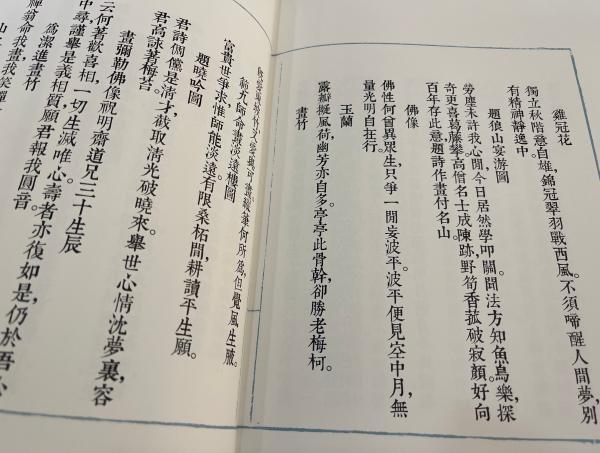 雞冠花
獨立秋階意自雄,錦冠翠羽戰西風。不須啼醒人間夢,別
有精神靜逸中。
題狼山宴游圖
勞塵未許我心閒,今日居然學叩關。聞法方知魚鳥樂,探
奇更喜葛藤攀。高僧名士成陳跡,野筍香菰破寂顏。好向
百年存此意,題詩作畫付名山。
佛像
佛性何曾異眾生,只爭一閒妄波平。波平便見空中月,無
量光明自在行。
玉蘭
露瓣擬風荷,幽芳亦自多。亭亭此骨幹,卻勝老梅柯。
畫竹
縱筆何所為,但覺風生腋。
師命畫淡遠樓圖
富貴世爭求,惟師能淡遠。有限桑柘間,耕讀平生願。
題曉吟圖
君詩倜儻是清才,截取清光破曉來。舉世心情沈夢裏,容
君高詠著梅苔。
畫彌勒佛像祝明齋道兄三十生辰
云何著歡喜相,一切生滅唯心。壽者亦復如是,仍於吾心
中尋。謹舉是義相質,願君報我圓音。
為潔進畫竹
禪翁命我畫,我笑禪